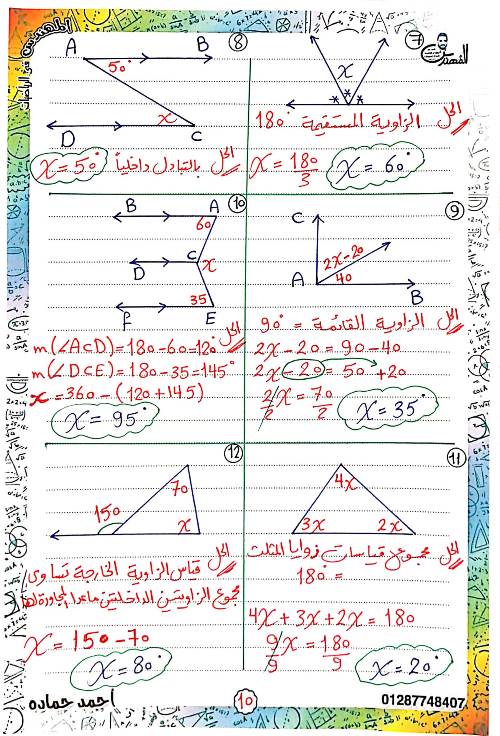 المهندس
في الرياضيات
المهندس
7
x
* * *
الحل الزاوية المستقيمة 180°
x = 180/3 x = 60°
8
A B
50°
x
D C
الحل بالتبادل داخلياً x = 50°
9
C
2x-20
A 40
B
الحل الزاوية القائمة = 90°
2x - 20 = 90 - 40
2x - 20 = 50 + 20
2/2 x = 70/2 x = 35°
10
B A
60
D C x
35
F E
الحل
m(∠ACD) = 180 - 60 = 120°
m(∠DCE) = 180 - 35 = 145°
x = 360 - (120 + 145)
x = 95°
11
4x
3x 2x
الحل مجموع قياسات زوايا المثلث
180° =
4x + 3x + 2x = 180
9/9 x = 180/9 x = 20°
12
70
150 x
الحل قياس الزاوية الخارجة تساوى
مجموع الزاويتين الداخلتين ماعدا المجاورة لها
x = 150 - 70
x = 80°
احمد حماده
10
01287748407